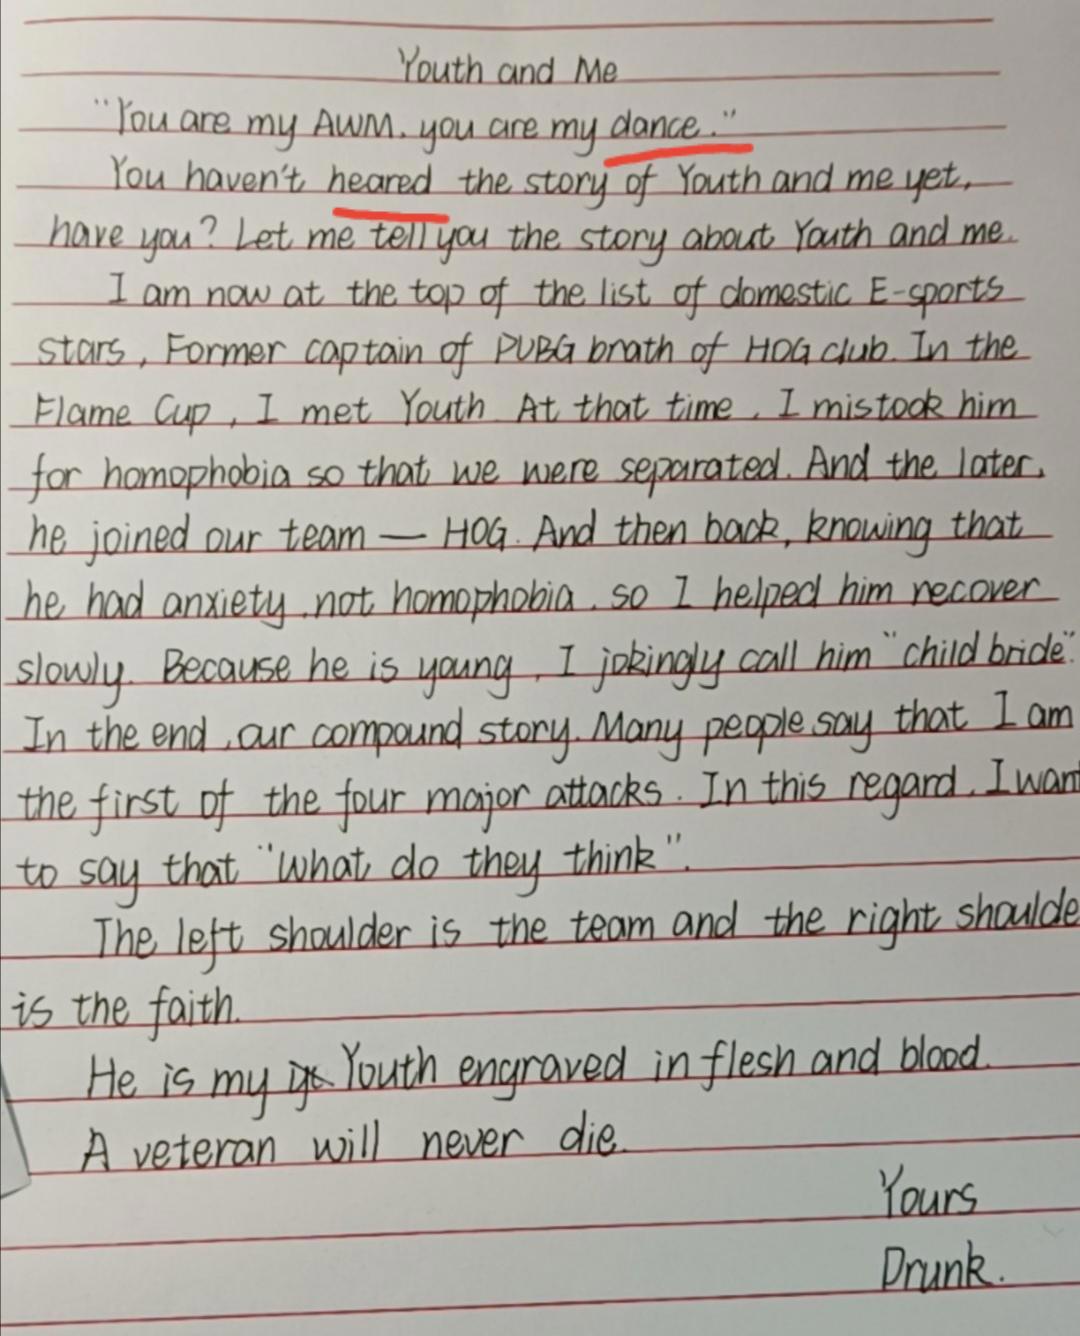 Youth and Me
"You are my AWM. you are my dance."
You haven't heared the story of Youth and me yet,
have you? Let me tell you the story about Youth and me.
I am now at the top of the list of domestic E-sports
stars, Former captain of PUBG brath of HOG club. In the
Flame Cup, I met Youth At that time, I mistook him
for homophobia so that we were separated. And the later,
he joined our team — HOG. And then back, knowing that
he had anxiety, not homophobia, so I helped him recover
slowly. Because he is young, I jokingly call him "child bride".
In the end, our compound story. Many people say that I am
the first of the four major attacks. In this regard, I want
to say that "what do they think".
The left shoulder is the team and the right shoulde
is the faith.
He is my Youth engraved in flesh and blood.
A veteran will never die.
Yours
Drunk.